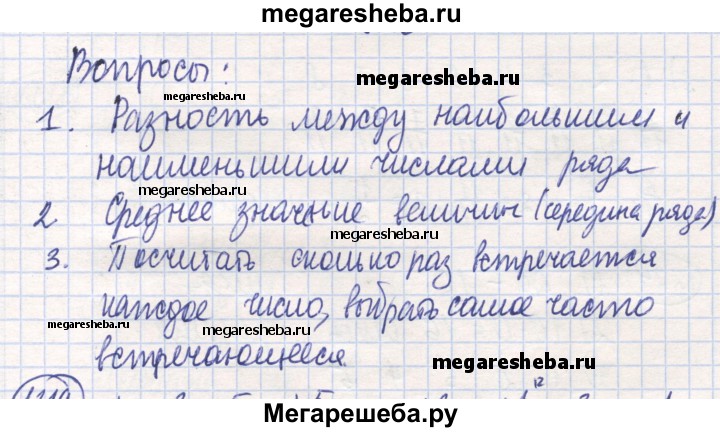 megaresheba.ru
Вопросы:
megaresheba.ru
megaresheba.ru
1. Разность между наибольшим и
наименьшими числами ряда
megaresheba.ru
2. Среднее значение величин (середина ряда)
megaresheba.ru
3. Посчитать сколько раз встречается
каждое число, выбрать самое часто
megaresheba.ru
megaresheba.ru
встречающееся
megaresheba.ru
Мегарешеба.ру